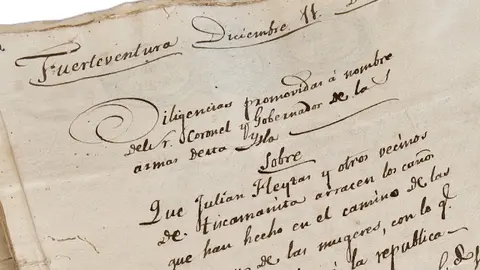 Fuerteventura Diciembre 11 D
Diligencias promovidas á nombre
del Sr. Coronel y Gobernador de las
armas desta Ysla
Sobre
Que Julian Fleytas y otros vecinos
de Tiscamanita arracen los caños
que han hecho en el camino de las
de las mugeres, con lo q.
la republica